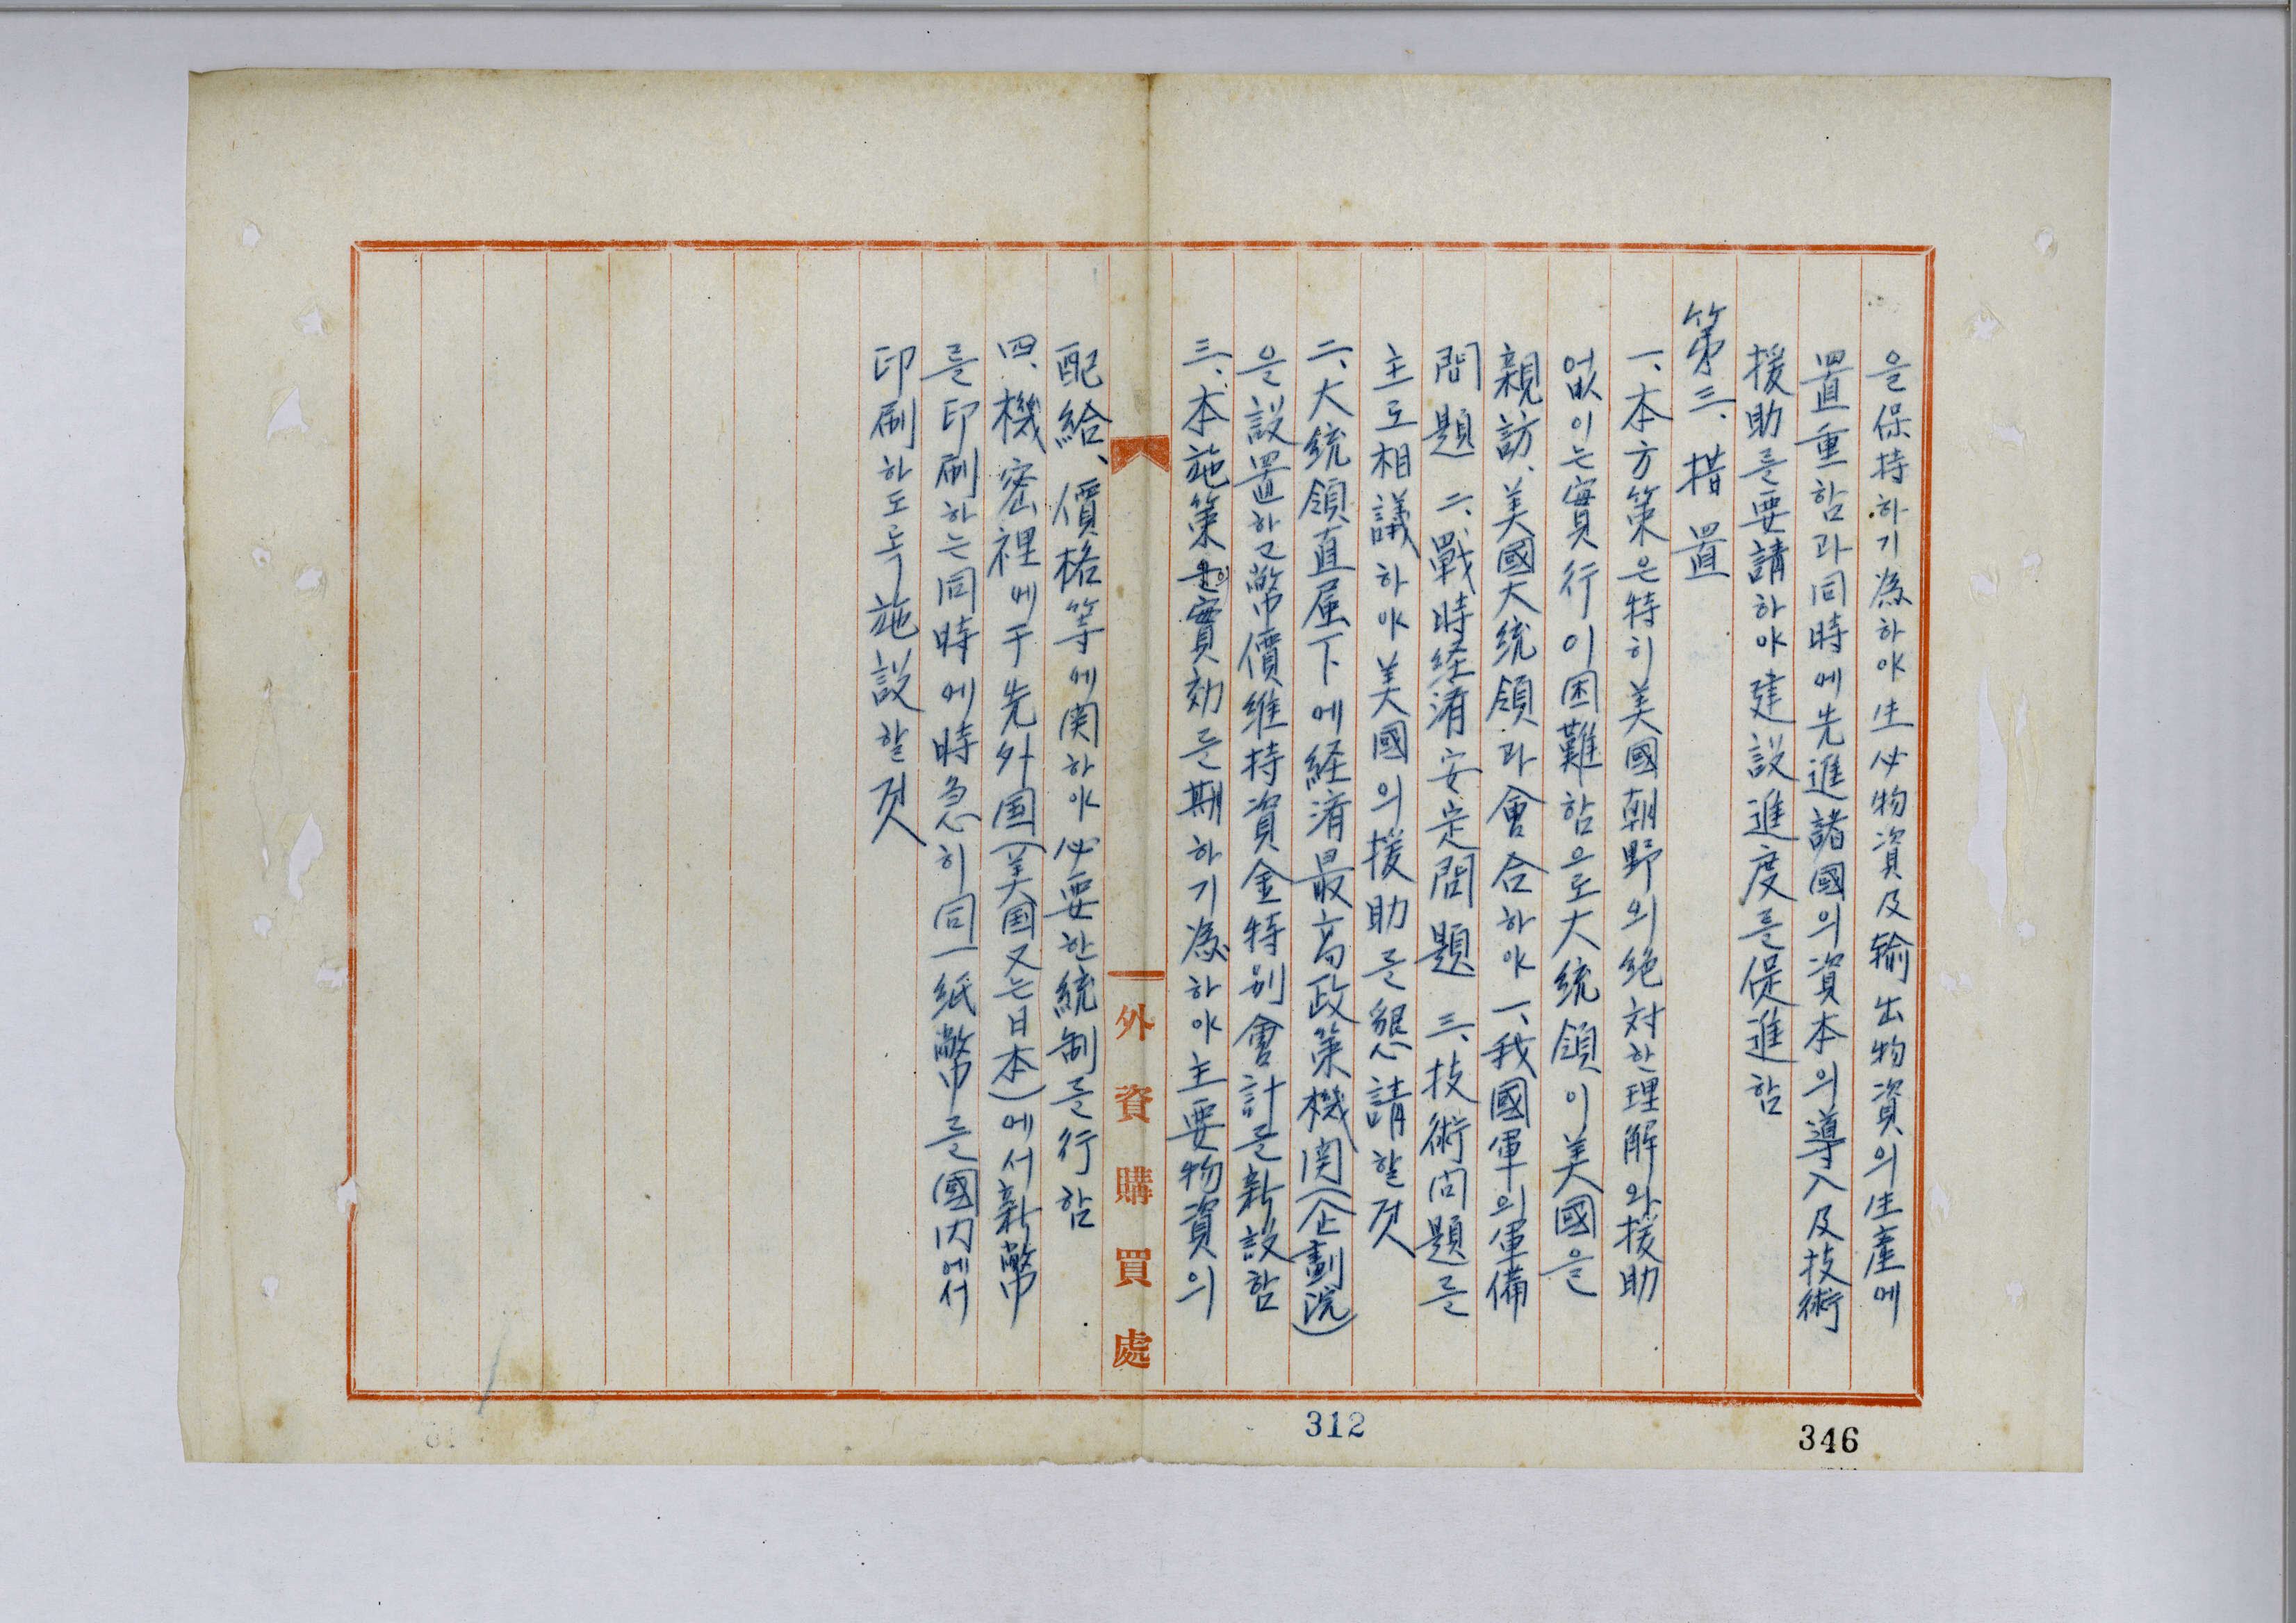 을保持하기爲하야生必物資及輸出物資의生產에
置重함과同時에先進諸國의資本의導入及技術
援助를要請하야建設進度를促進함
第三、措置
一、本方策은特히美國朝野의絶対한理解와援助
없이는實行이困難함으로大統領이美國을
親訪、美國大統領과會合하야一、我國軍의軍備
問題 二、戰時経済安定問題 三、技術問題를
主로相議하야美國의援助를懇請할것
二、大統領直屬下에経済最高政策機関(企劃院)
을設置하고幣價維持資金特別會計를新設함
三、本施策의實効를期하기爲하야主要物資의
配給、價格等에関하야必要한統制를行함
四、機密裡에于先外国(美国又는日本)에서新幣
를印刷하는同時에時急히同一紙幣를國内에서
印刷하도록施設할것
外資購買處
312
346